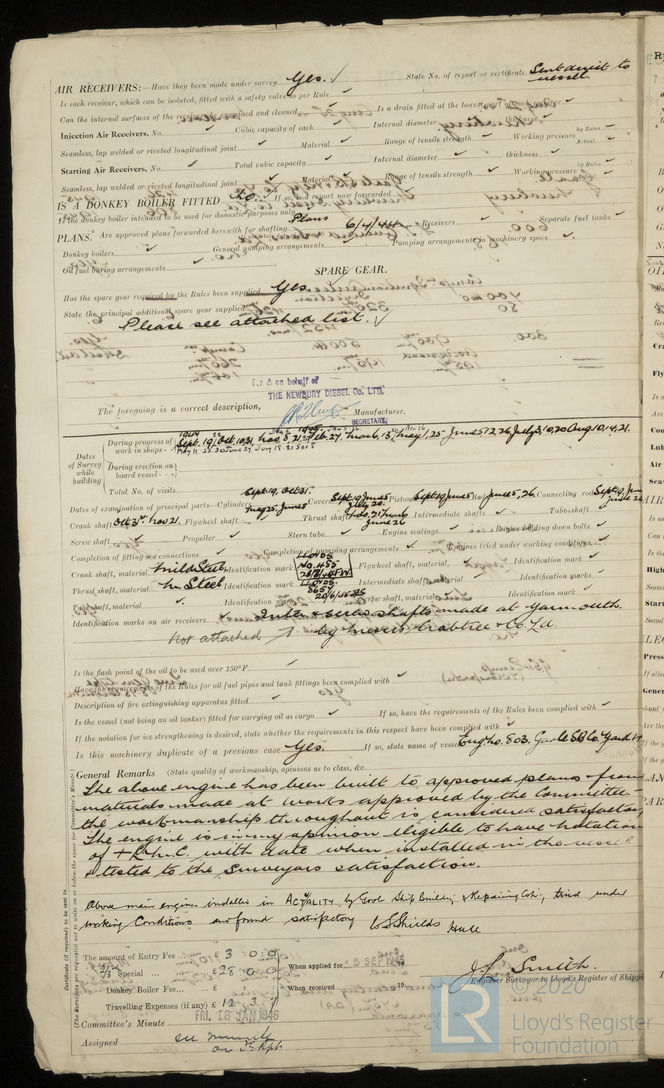 AIR RECEIVERS:—Have they been made under survey Yes. ✓ State No. of report or certificate Sent direct to vessel
Is each receiver, which can be isolated, fitted with a safety valve as per Rule ✓
Can the internal surfaces of the receivers be examined and cleaned ✓ Is a drain fitted at the lowest part of each receiver ✓
Injection Air Receivers, No. ✓ Cubic capacity of each ✓ Internal diameter ✓ thickness ✓
Seamless, lap welded or riveted longitudinal joint ✓ Material ✓ Range of tensile strength ✓ Working pressure by Rules ✓ Actual ✓
Starting Air Receivers, No. ✓ Total cubic capacity ✓ Internal diameter ✓ thickness ✓
Seamless, lap welded or riveted longitudinal joint ✓ Material ✓ Range of tensile strength ✓ Working pressure by Rules ✓
IS A DONKEY BOILER FITTED No. If so, has a report now forwarded
Is the donkey boiler intended to be used for domestic purposes only
PLANS. Are approved plans forwarded herewith for shafting Plans 6/4/44 Receivers ✓ Separate fuel tanks ✓
Donkey boilers ✓ General pumping arrangements ✓ Pumping arrangements in machinery space ✓
Oil fuel burning arrangements ✓
SPARE GEAR.
Has the spare gear required by the Rules been supplied Yes.
State the principal additional spare gear supplied
Please see attached list. ✓
For & on behalf of
THE NEWBURY DIESEL Co. LTD.
The foregoing is a correct description, Manufacturer.
SECRETARY.
Dates of Survey while building
During progress of work in shops - -
During erection on board vessel - - -
Total No. of visits
Dates of examination of principal parts—Cylinders Sept. 19, Oct. 31. May 25, June 5 Covers Sept 19 June 5 July 20. Pistons Sept 19 June 5 Rods June 5, 26. Connecting rods Sept 19, June
Crank shaft Oct 31st Nov 21. Flywheel shaft ✓ Thrust shaft Intermediate shafts ✓ Tube shaft ✓
Screw shaft ✓ Propeller ✓ Stern tube ✓ Engine seatings ✓ Engine holding down bolts ✓
Completion of fitting sea connections ✓ Completion of pumping arrangements ✓ Engines tried under working conditions ✓
Crank shaft, material Mild Steel Identification mark LLOYDS No. 455 Flywheel shaft, material ✓ Identification mark ✓
Thrust shaft, material M Steel Identification mark LLOYDS 365 20/6/45 Intermediate shafts, material Identification marks ✓
Tube shaft, material ✓ Identification mark Screw shaft, material Identification mark ✓
Identification marks on air receivers Inter & screw shafts made at Yarmouth.
Not attached by Messrs Crabtree & Co. Ld.
Is the flash point of the oil to be used over 150°F ✓
Have the requirements of the Rules for oil fuel pipes and tank fittings been complied with ✓
Description of fire extinguishing apparatus fitted ✓
Is the vessel (not being an oil tanker) fitted for carrying oil as cargo ✓ If so, have the requirements of the Rules been complied with ✓
If the notation for ice strengthening is desired, state whether the requirements in this respect have been complied with ✓
Is this machinery duplicate of a previous case Yes. If so, state name of vessel Eng. No. 803. Goole S.B. Co. Yard
General Remarks (State quality of workmanship, opinions as to class, &c.
The above engine has been built to approved plans from
materials made at works approved by the Committee
the workmanship throughout is considered satisfactory
The engine is in my opinion eligible to have notation
of + L.M.C. with date when installed in the vessel
& tested to the Surveyors satisfaction.
Above main engine installed in ACTUALITY by Goole Ship Building & Repairing Coy., tried under
working conditions and found satisfactory Hull
Certificate (if required) to be sent to
(The Surveyors are requested not to write on or below the space for Committee's Minute.)
The amount of Entry Fee ... £ 3 : 0 : 0
Special ... ... £ 28 : 0 : 0
Donkey Boiler Fee... £ : :
Travelling Expenses (if any) £ 12 : 3 :
When applied for 5 SEP 1945
When received 19
J. L. Smith.
Engineer Surveyor to Lloyd's Register of Shipp
FRI. 18 JAN 1946
Committee's Minute
Assigned See minute on
© 2020
LR
Lloyd's Register
Foundation